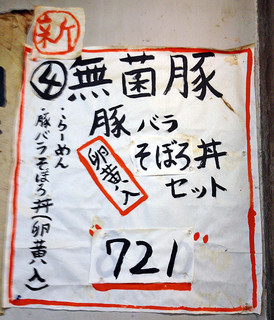 新
④無菌豚
豚バラ
そぼろ丼
卵黄入
セット
・らーめん
・豚バラそぼろ丼(卵黄入)
721